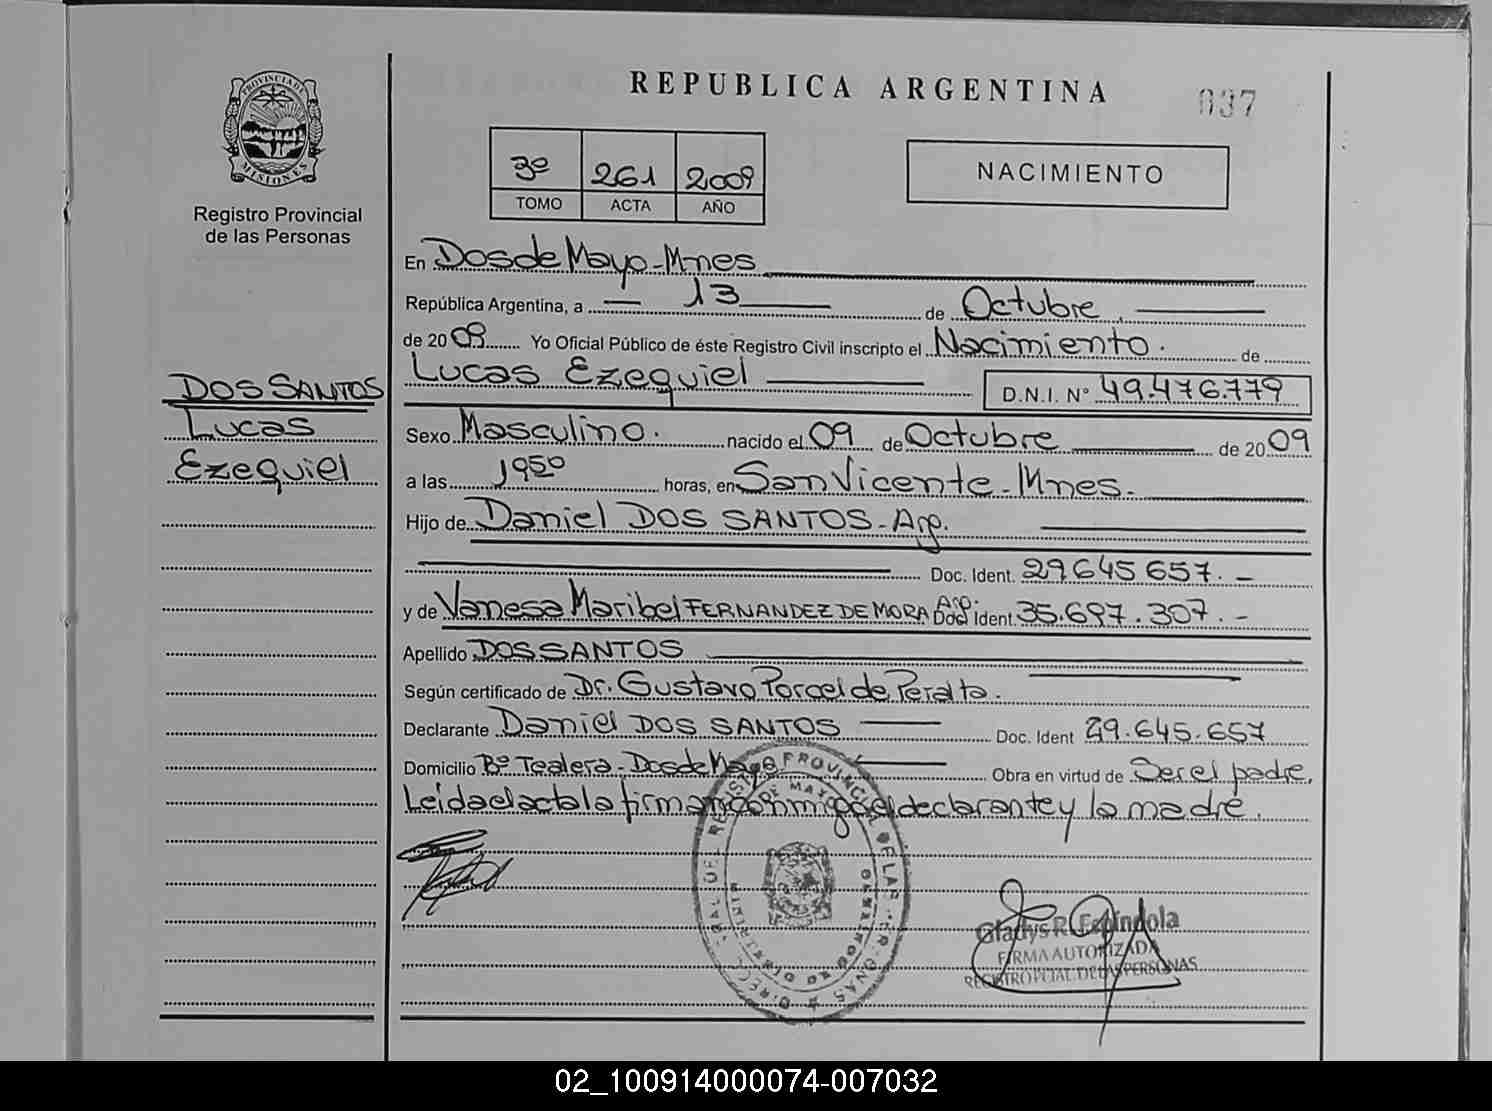 REPUBLICA ARGENTINA
037
PROVINCIA DE
MISIONES
Registro Provincial
de las Personas
3º 261 2009
TOMO ACTA AÑO
NACIMIENTO
En Dos de Mayo - Mnes
República Argentina, a 13 de Octubre
de 2009 Yo Oficial Público de éste Registro Civil inscripto el Nacimiento. de
Lucas Ezequiel D.N.I. Nº 49.476.779
DOS SANTOS
Lucas
Ezequiel
Sexo Masculino. nacido el 09 de Octubre de 2009
a las 1950 horas, en San Vicente - Mnes.
Hijo de Daniel DOS SANTOS - Arg.
Doc. Ident. 29645657. -
y de Vanesa Maribel FERNANDEZ DE MORA Arg. Doc Ident. 35.697.307. -
Apellido DOS SANTOS
Según certificado de Dr. Gustavo Porcel de Peralta.
Declarante Daniel DOS SANTOS Doc. Ident 29.645.657
Domicilio Bº Tealera - Dos de Mayo Obra en virtud de Ser el padre,
Leida el acta la firman conmigo el declarante y la madre.
Gladys R. Espindola
FIRMA AUTORIZADA
REGISTRO PCIAL. DE LAS PERSONAS
02_100914000074-007032